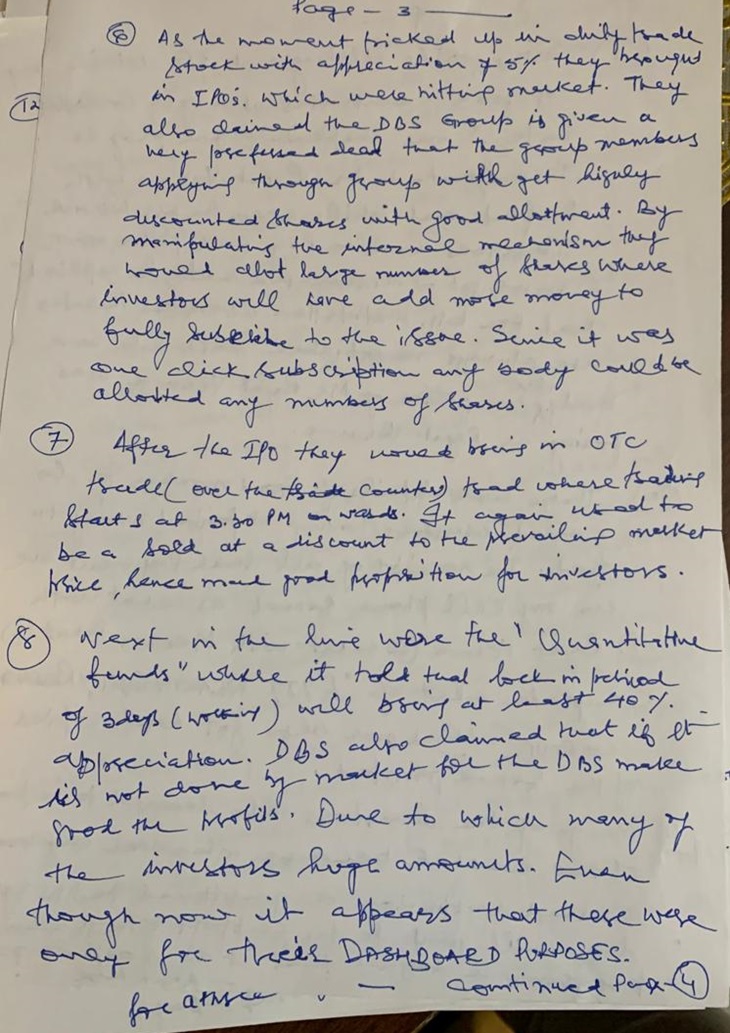 Page - 3
⑥ As the moment pricked up in daily trade
stock with appreciation of 5% they brought
in IPOs. which were hitting market. They
also claimed the DBS Group is given a
very preferred dead that the group members
applying through group will get highly
discounted shares with good allottment. By
manipulating the internal mechanism they
would allot large number of shares where
investors will have add more money to
fully subscribe to the issue. Since it was
one click subscription any body could be
allotted any numbers of shares.
⑦ After the IPO they would bring in OTC
trade (over the counter) trad where trading
starts at 3.30 PM on wards. It again used to
be a sold at a discount to the prevailing market
price, hence mad good proposition for investors.
⑧ Next in the line were the "Quantitative
funds" where it told that lock in period
of 3 days (working) will bring at least 40%.
appreciation. DBS also claimed that if it
is not done by market for the DBS make
good the profits. Due to which many of
the investors huge amounts. Even
though now it appears that these were
only for their DASHBOARD PURPOSES.
Continued Page - ④
12